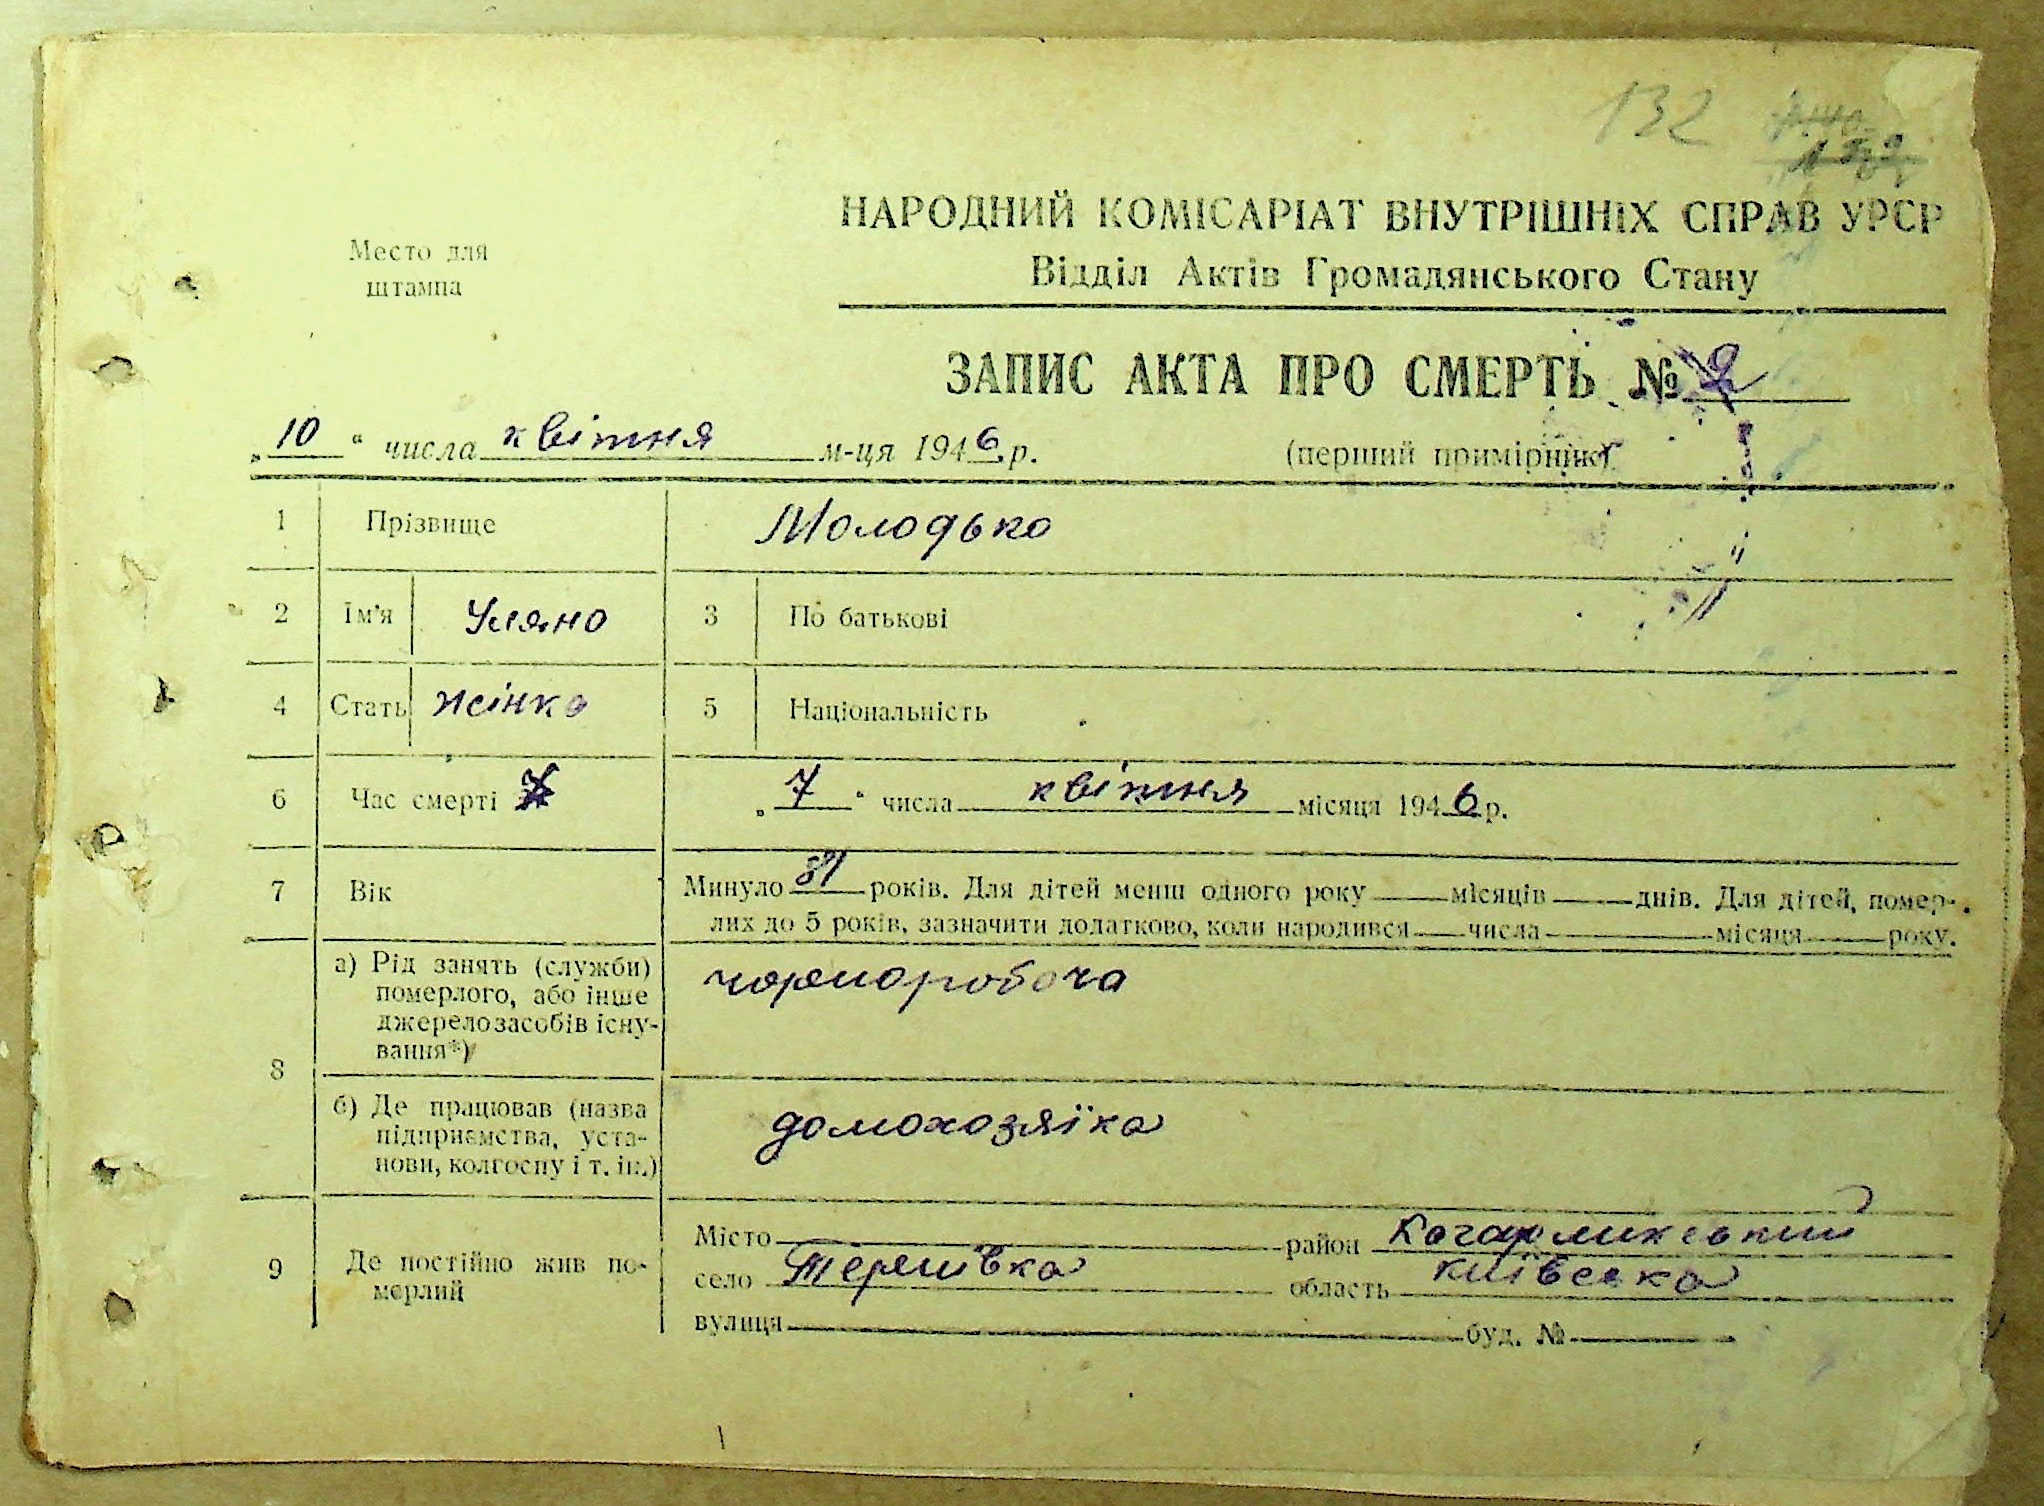 132
НАРОДНИЙ КОМІСАРІАТ ВНУТРІШНІХ СПРАВ УРСР
Место для
штампа
Відділ Актів Громадянського Стану
ЗАПИС АКТА ПРО СМЕРТЬ № 2
„10“ числа квітня м-ця 1946 р.
(перший примірник)
1 Прізвище Молодько
2 Ім'я Уляно 3 По батькові
4 Стать жінка 5 Національність
6 Час смерті „7“ числа квітня місяця 1946 р.
7 Вік Минуло 81 років. Для дітей менш одного року місяців днів. Для дітей, помер-
лих до 5 років, зазначити додатково, коли народився числа місяця року.
8 а) Рід занять (служби) чорноробоча
померлого, або інше
джерело засобів існу-
вання*)
б) Де працював (назва домохозяїка
підприємства, уста-
нови, колгоспу і т. ін.)
9 Де постійно жив по-
мерлий
Місто район Кагарликський
село Терешівка область київська
вулиця буд. №